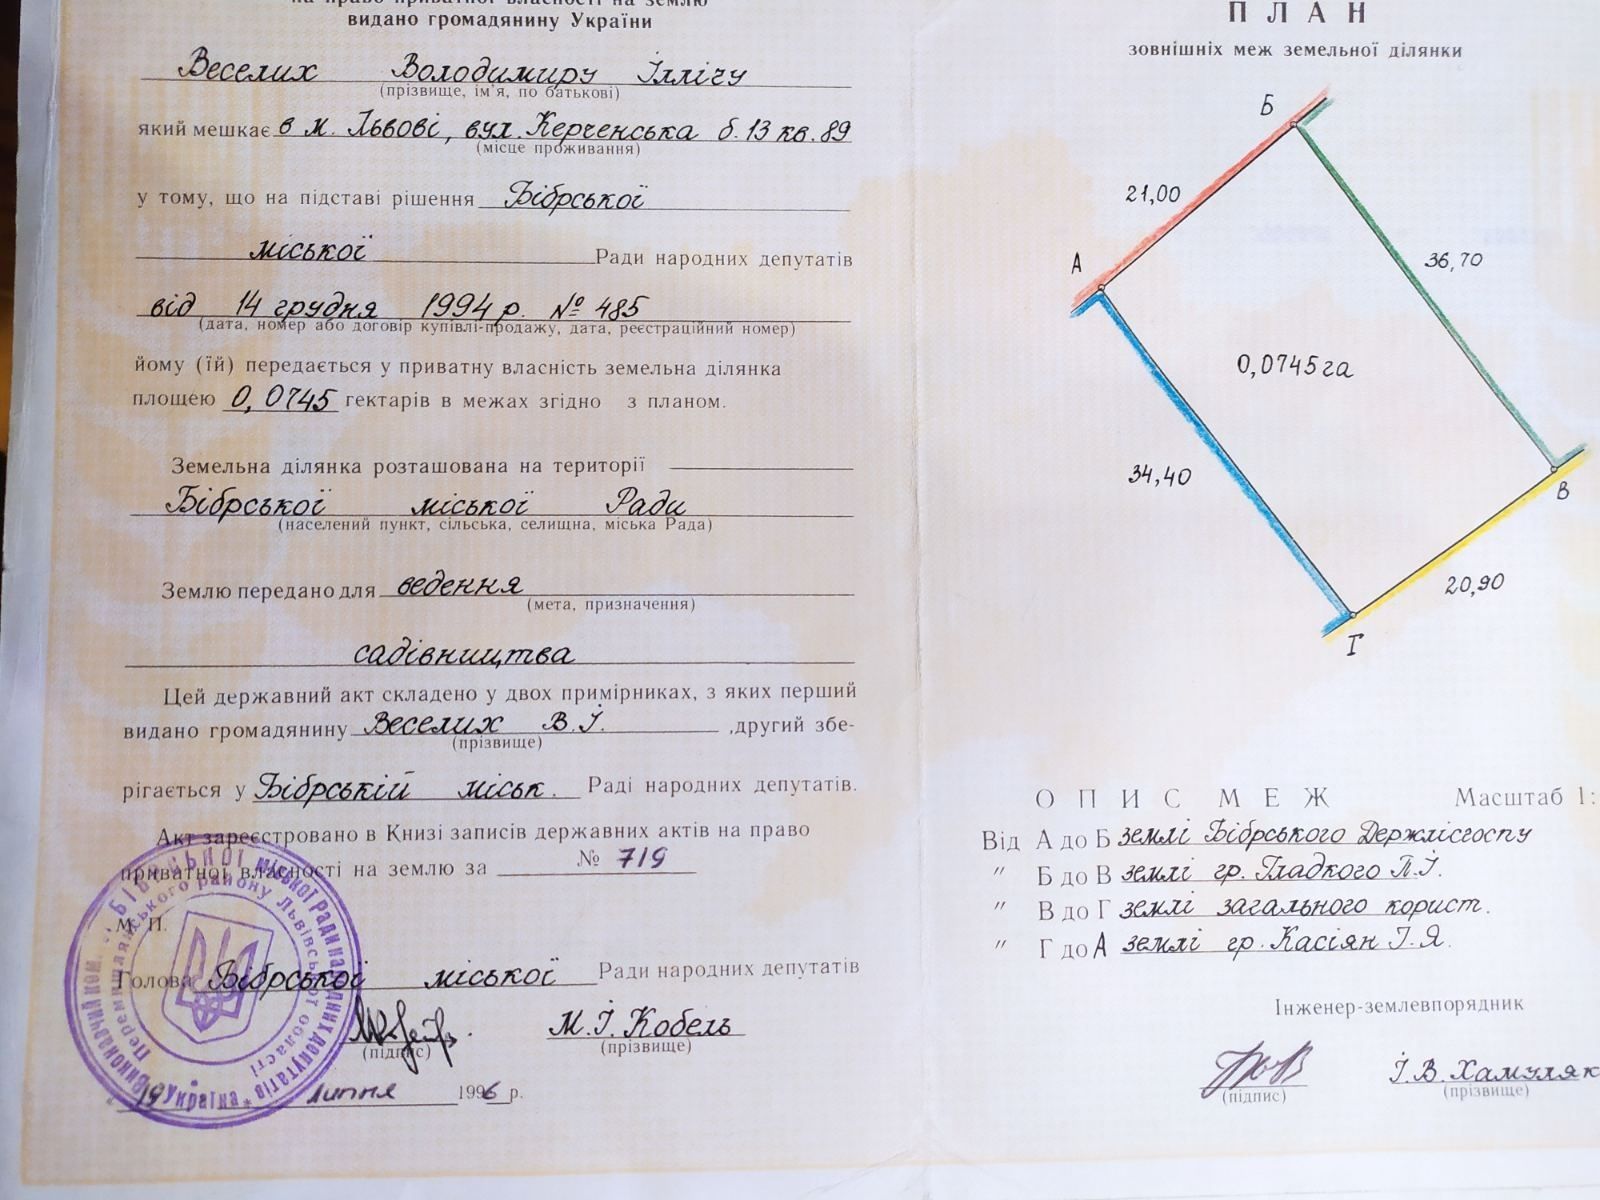 на право приватної власності на землю
видано громадянину України
Веселих Володимиру Іллічу
(прізвище, ім'я, по батькові)
який мешкає в м. Львові, вул. Керченська б. 13 кв. 89
(місце проживання)
у тому, що на підставі рішення Бібрської
міської Ради народних депутатів
від 14 грудня 1994 р. № 485
(дата, номер або договір купівлі-продажу, дата, реєстраційний номер)
йому (їй) передається у приватну власність земельна ділянка
площею 0,0745 гектарів в межах згідно з планом.
Земельна ділянка розташована на території
Бібрської міської Ради
(населений пункт, сільська, селищна, міська Рада)
Землю передано для ведення
(мета, призначення)
садівництва
Цей державний акт складено у двох примірниках, з яких перший
видано громадянину Веселих В.І. , другий збе-
(прізвище)
рігається у Бібрській міськ. Раді народних депутатів.
Акт зареєстровано в Книзі записів державних актів на право
приватної власності на землю за № 719
М. П.
Голова Бібрської міської Ради народних депутатів
М.І. Кобель
(підпис) (прізвище)
19 липня 1996 р.
Виконавчий ком. Бібрської міської Ради народних депутатів * Україна *
Перемишлянського району Львівської області
ПЛАН
зовнішніх меж земельної ділянки
Б
21,00
А
36,70
0,0745 га
34,40
В
20,90
Г
ОПИС МЕЖ Масштаб 1:
Від А до Б землі Бібрського Держлісгоспу
" Б до В землі гр. Гладкого П.І.
" В до Г землі загального корист.
" Г до А землі гр. Касіян І.Я.
Інженер-землевпорядник
І.В. Хамуляк
(підпис) (прізвище)